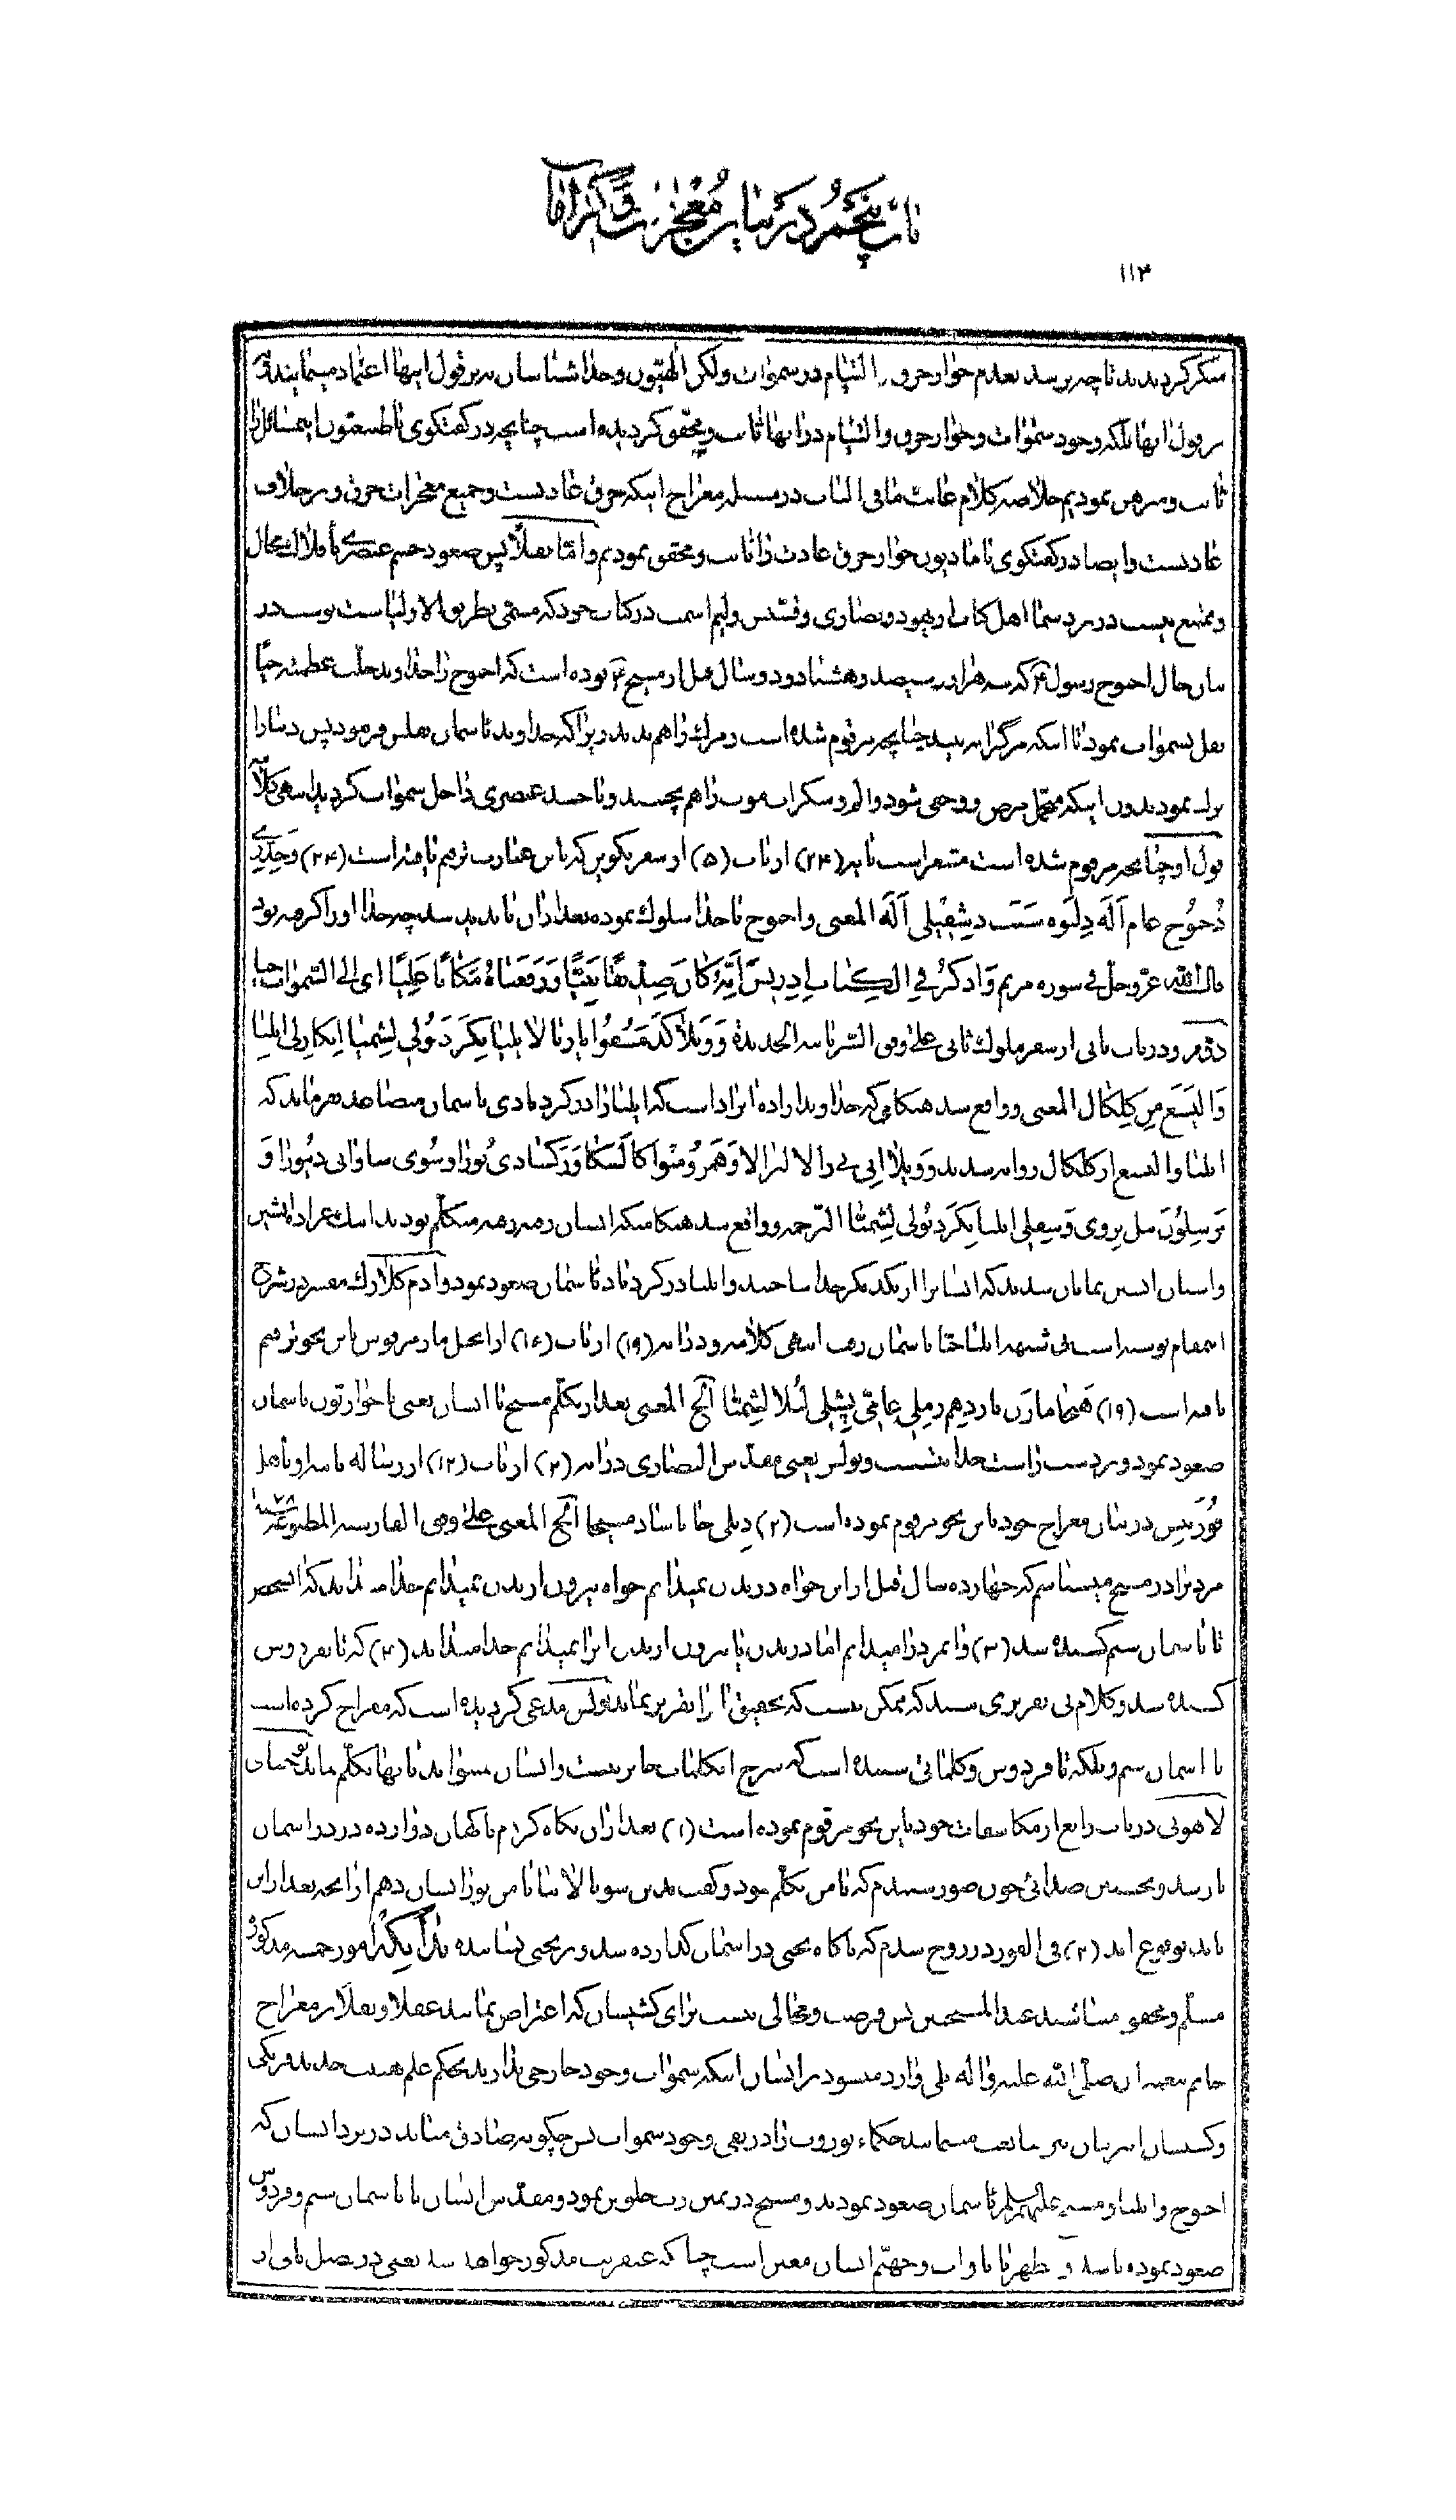 باب پنجم در بیان معجزات و کرامات
۱۱۳
منکر گردیدند تا چه برسد بعدم جواز خرق و التیام در سموات ولکن الهیون و خداشناسان نه بر قول اینها اعتماد مینمایند و نه
بر قول آنها بلکه وجود سموات و جواز خرق و التیام در آنها ثابت و محقق گردیده است چنانچه در گفتگوی با طبیعیون این مسائل را
ثابت و مبرهن نمودیم خلاصه کلام غایت ما فی الباب در مسئله معراج اینکه خرق عادتست و جمیع معجزات خرق و بر خلاف
عادتست و ایضا در گفتگوی با مادیون جواز خرق عادت را ثابت و محقق نمودیم و امّا نقلاً پس صعود جسم عنصری بأفلاك محال
و ممتنع نیست در نزد شما اهل کتاب از یهود و نصاری و قسّیس ولیم اسمت در کتاب خود که مسمّی بطریق الاولیاست نوشت در
بیان حال اخنوخ رسول ع که سه هزار و سیصد و هشتاد و دو سال قبل از مسیح ع بوده است که اخنوخ را خداوند جلّت عظمته حیّا
نقل بسموات نمود تا اینکه مرگ را نه بیند چنانچه مرقوم شده است و مرگ را هم ندید زیرا که خداوند بآسمان نقلش فرمود پس دنیا را
ترك نمود بدون اینکه متحمل مرض و وجعی شود و الم و سکرات موت را هم نچشید و با جسد عنصری داخل سموات گردید انتهی کلامه
قول او چنانچه مرقوم شده است مشعر است بآیه (۲۴) از باب (۵) از سفر تکوین که باین عبارت ترقیم یافته است (۲۴) وَ حَدَرِی
خُنوُخ عام اَلَه دِلَوه سَبَب دِشِقیلی اَلَه المعنی و اخنوخ با خدا سلوك نموده بعد از آن ناپدید شد چه خدا او را گرفته بود
قال اللّه عزّ و جلّ فی سوره مریم وَ اذْکُرْ فِی الْکِتابِ اِدریسَ اِنَّهُ کانَ صِدّیقًا نَبِیًّا وَ رَفَعْناهُ مَکانًا عَلِیًّا ای الی السّموات حیا
دوّم و در باب ثانی از سفر ملوك ثانی علی وفق السریانیه الجدیدة
وَ الیَسَع مِن کِلکال المعنی و واقع شد هنگامی که خداوند اراده ایراد است که ایلیا را در گردبادی بآسمان متصاعد فرماید که
ایلیا و الیسع از کلکال روانه شدند
الترجمه و واقع شد هنگامیکه ایشان رهه رهه متکلم بودند اینك عراده آتشین
و اسبان آتشین نمایان شدند که ایشانرا از یکدیگر جدا ساختند و ایلیا در گردباد بآسمان صعود نمود و آدم کلارك مفسر در شرح
اینمقام نوشته است که بی شبهه ایلیا حیّا بآسمان رفت انتهی کلامه و در آیه (۱۹) از باب (۱۶) از انجیل مار مرقوس باین نحو ترقیم
یافته است (۱۹) المعنی بعد از تکلّم مسیح با ایشان یعنی با حواریّون بآسمان
صعود نمود و بر دست راست خدا بنشست و پولس یعنی مقدّس النصاری در آیه (۲) از باب (۱۲) از رساله ثانیه او باهل
قُورَنیِس در بیان معراج خود باین نحو مرقوم نموده است (۲) المعنی علی وفق الفارسیه المطبوعه
مردیرا در مسیح میشناسم که چهارده سال قبل از این خواه در بدن نمیدانم خواه بیرون از بدن نمیدانم خدا میداند که آنشخص
تا بآسمان سیّم کشیده شد (۳) و آنمرد را میدانم امّا در بدن یا بیرون از بدن آنرا نمیدانم خدا میداند (۴) که تا بفردوس
کشیده شد و کلام بی تقریری شنید که ممکن نیست که تحقیق آنرا تقریر نماید پولس مدعی گردیده است که معراج کرده است
تا آسمان سیّم و بلکه تا فردوس و کلماتی شنیده است که شرح آنکلمات جایز نیست و انسان نمیتواند بآنها تکلّم نماید یوحنّای
لاهوتی در باب رابع از مکاشفات خود باین نحو مرقوم نموده است (۱) بعد از آن نگاه کردم ناگهان دروازه در در آسمان
باز شد و نخستین صدائی چون صور شنیدم که با من تکلّم نمود و گفت بدین سو بالا بیا تا من بتو نشان دهم از آنچه بعد از این
باید بوقوع آید (۲) فی الفور در روح شدم که ناگاه تختی در آسمان گذارده شد و بر تختی نشاننده بنا بر این امور خمسه مذکوره
مسلّم و محقق میباشد عند المسیحیین پس فرصت و مجالی نیست برای کشیشان که اعتراض نمایند عقلاً و نقلاً بر معراج
خاتم پیغمبران صلّی اللّه علیه و آله بلی وارد میشود بر ایشان اینکه سموات وجود خارجی ندارند بحکم علم هیئت جدیده فرنگی
و کشیشان انبر زمان نیز متابعت مینمایند حکماء یوروپ را در نفی وجود سموات پس چگونه صادق میآید در نزد ایشان که
اخنوخ و ایلیا و مسیح علیهم السلام بآسمان صعود نمودند و مسیح در یمین رب جلوس نمود و مقدّس ایشان تا بآسمان سیّم و فردوس
صعود نموده باشد و جهنّم ایشان معیّن است چنانکه عنقریب مذکور خواهد شد یعنی در فصل ثانی از